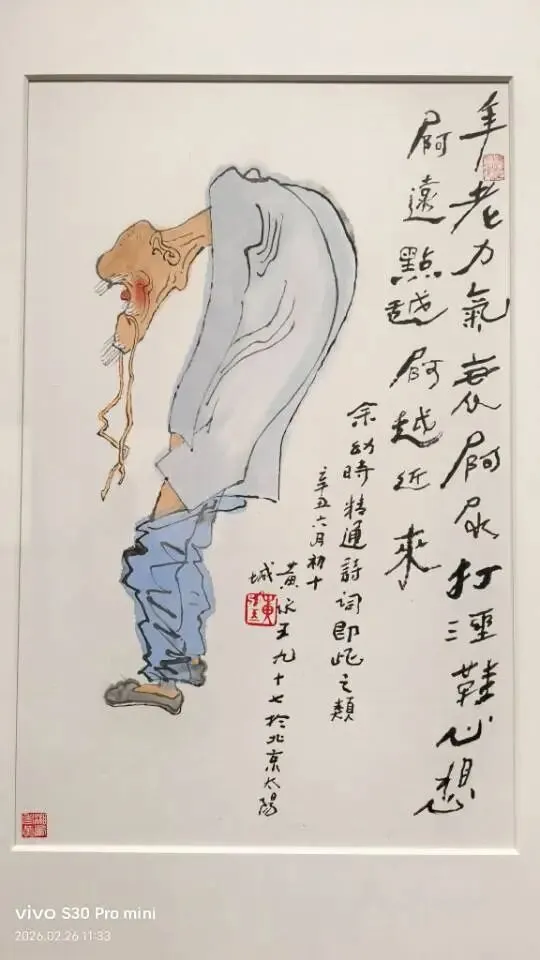 年老力氣衰屙尿打溼鞋心想
屙遠點越屙越近來
余幼時精通詩詞即此之類
辛丑六月初十
黃永玉九十七於北京太陽
城
vivo S30 Pro mini
2026.02.26 11:33